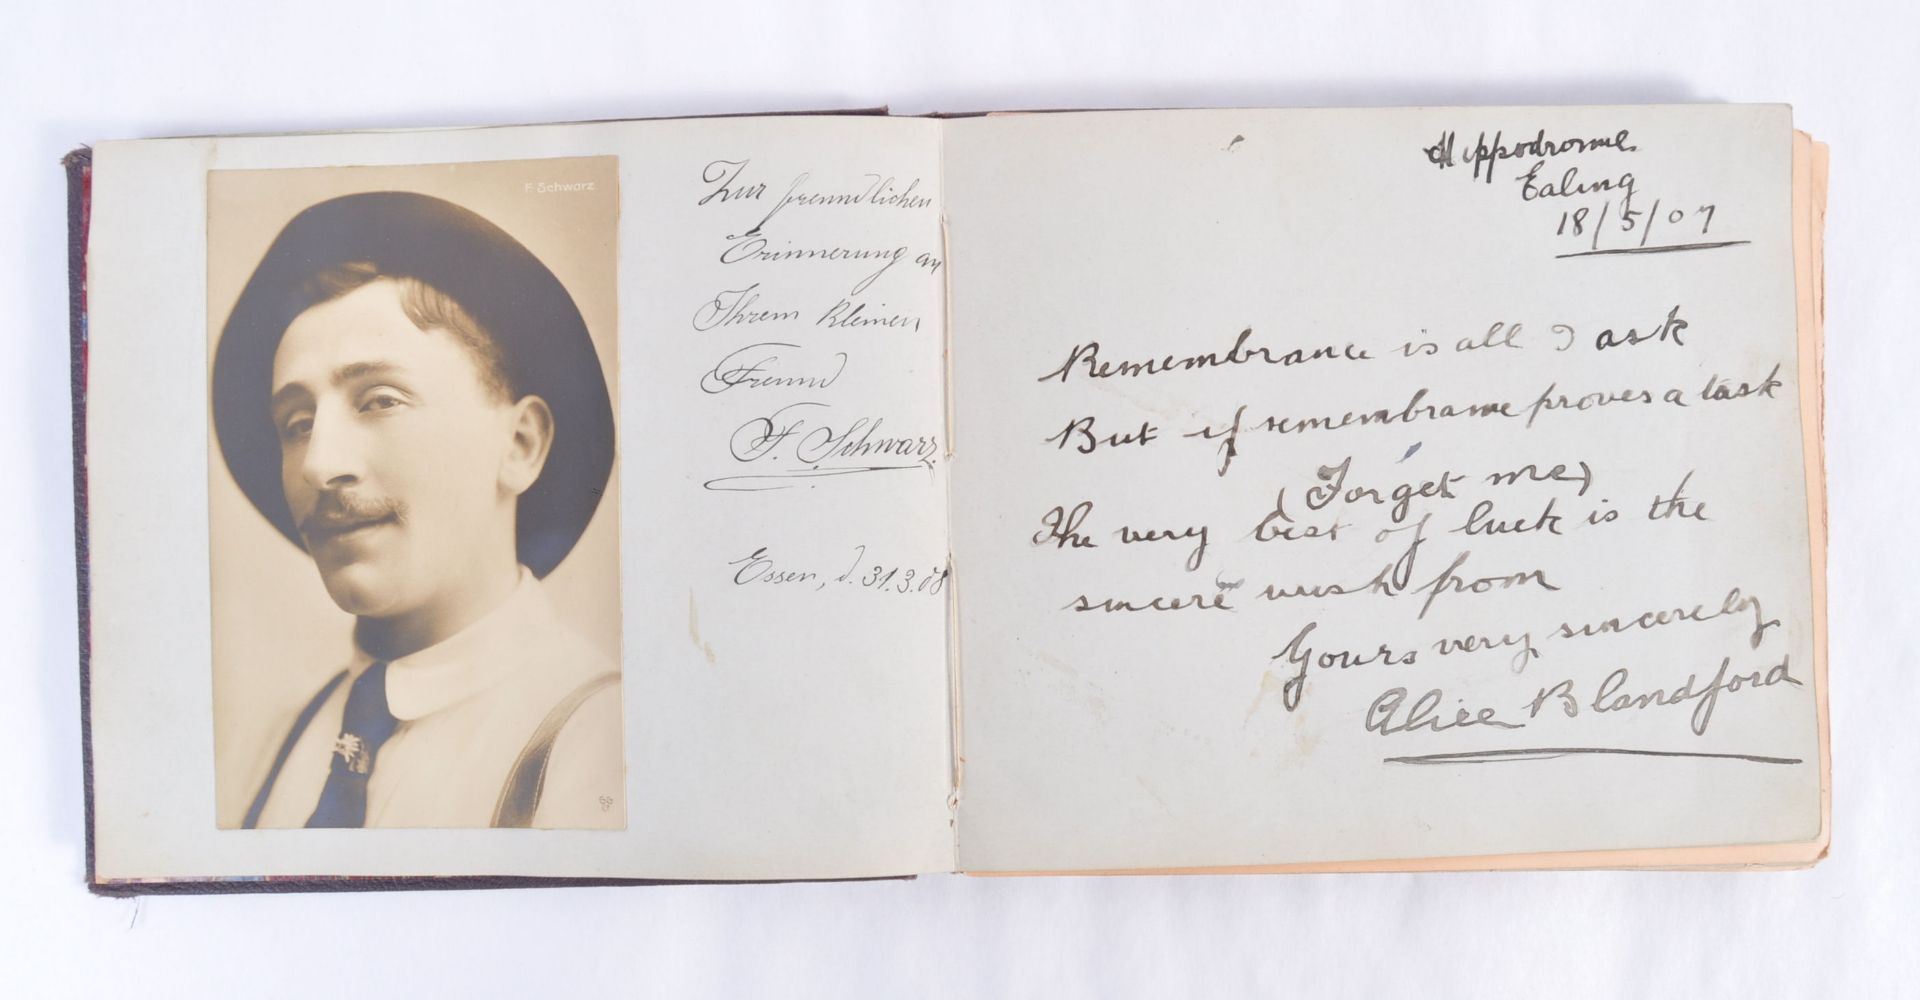 F. Schwarz
Zur freundlichen
Erinnerung an
Ihrem kleinen
Freund
F. Schwarz.
Essen, d. 31.3.08
Hippodrome
Ealing
18/5/07
Remembrance is all I ask
But if remembrance proves a task
(Forget me)
The very best of luck is the
sincere wish from
Yours very sincerely
Alice Blandford